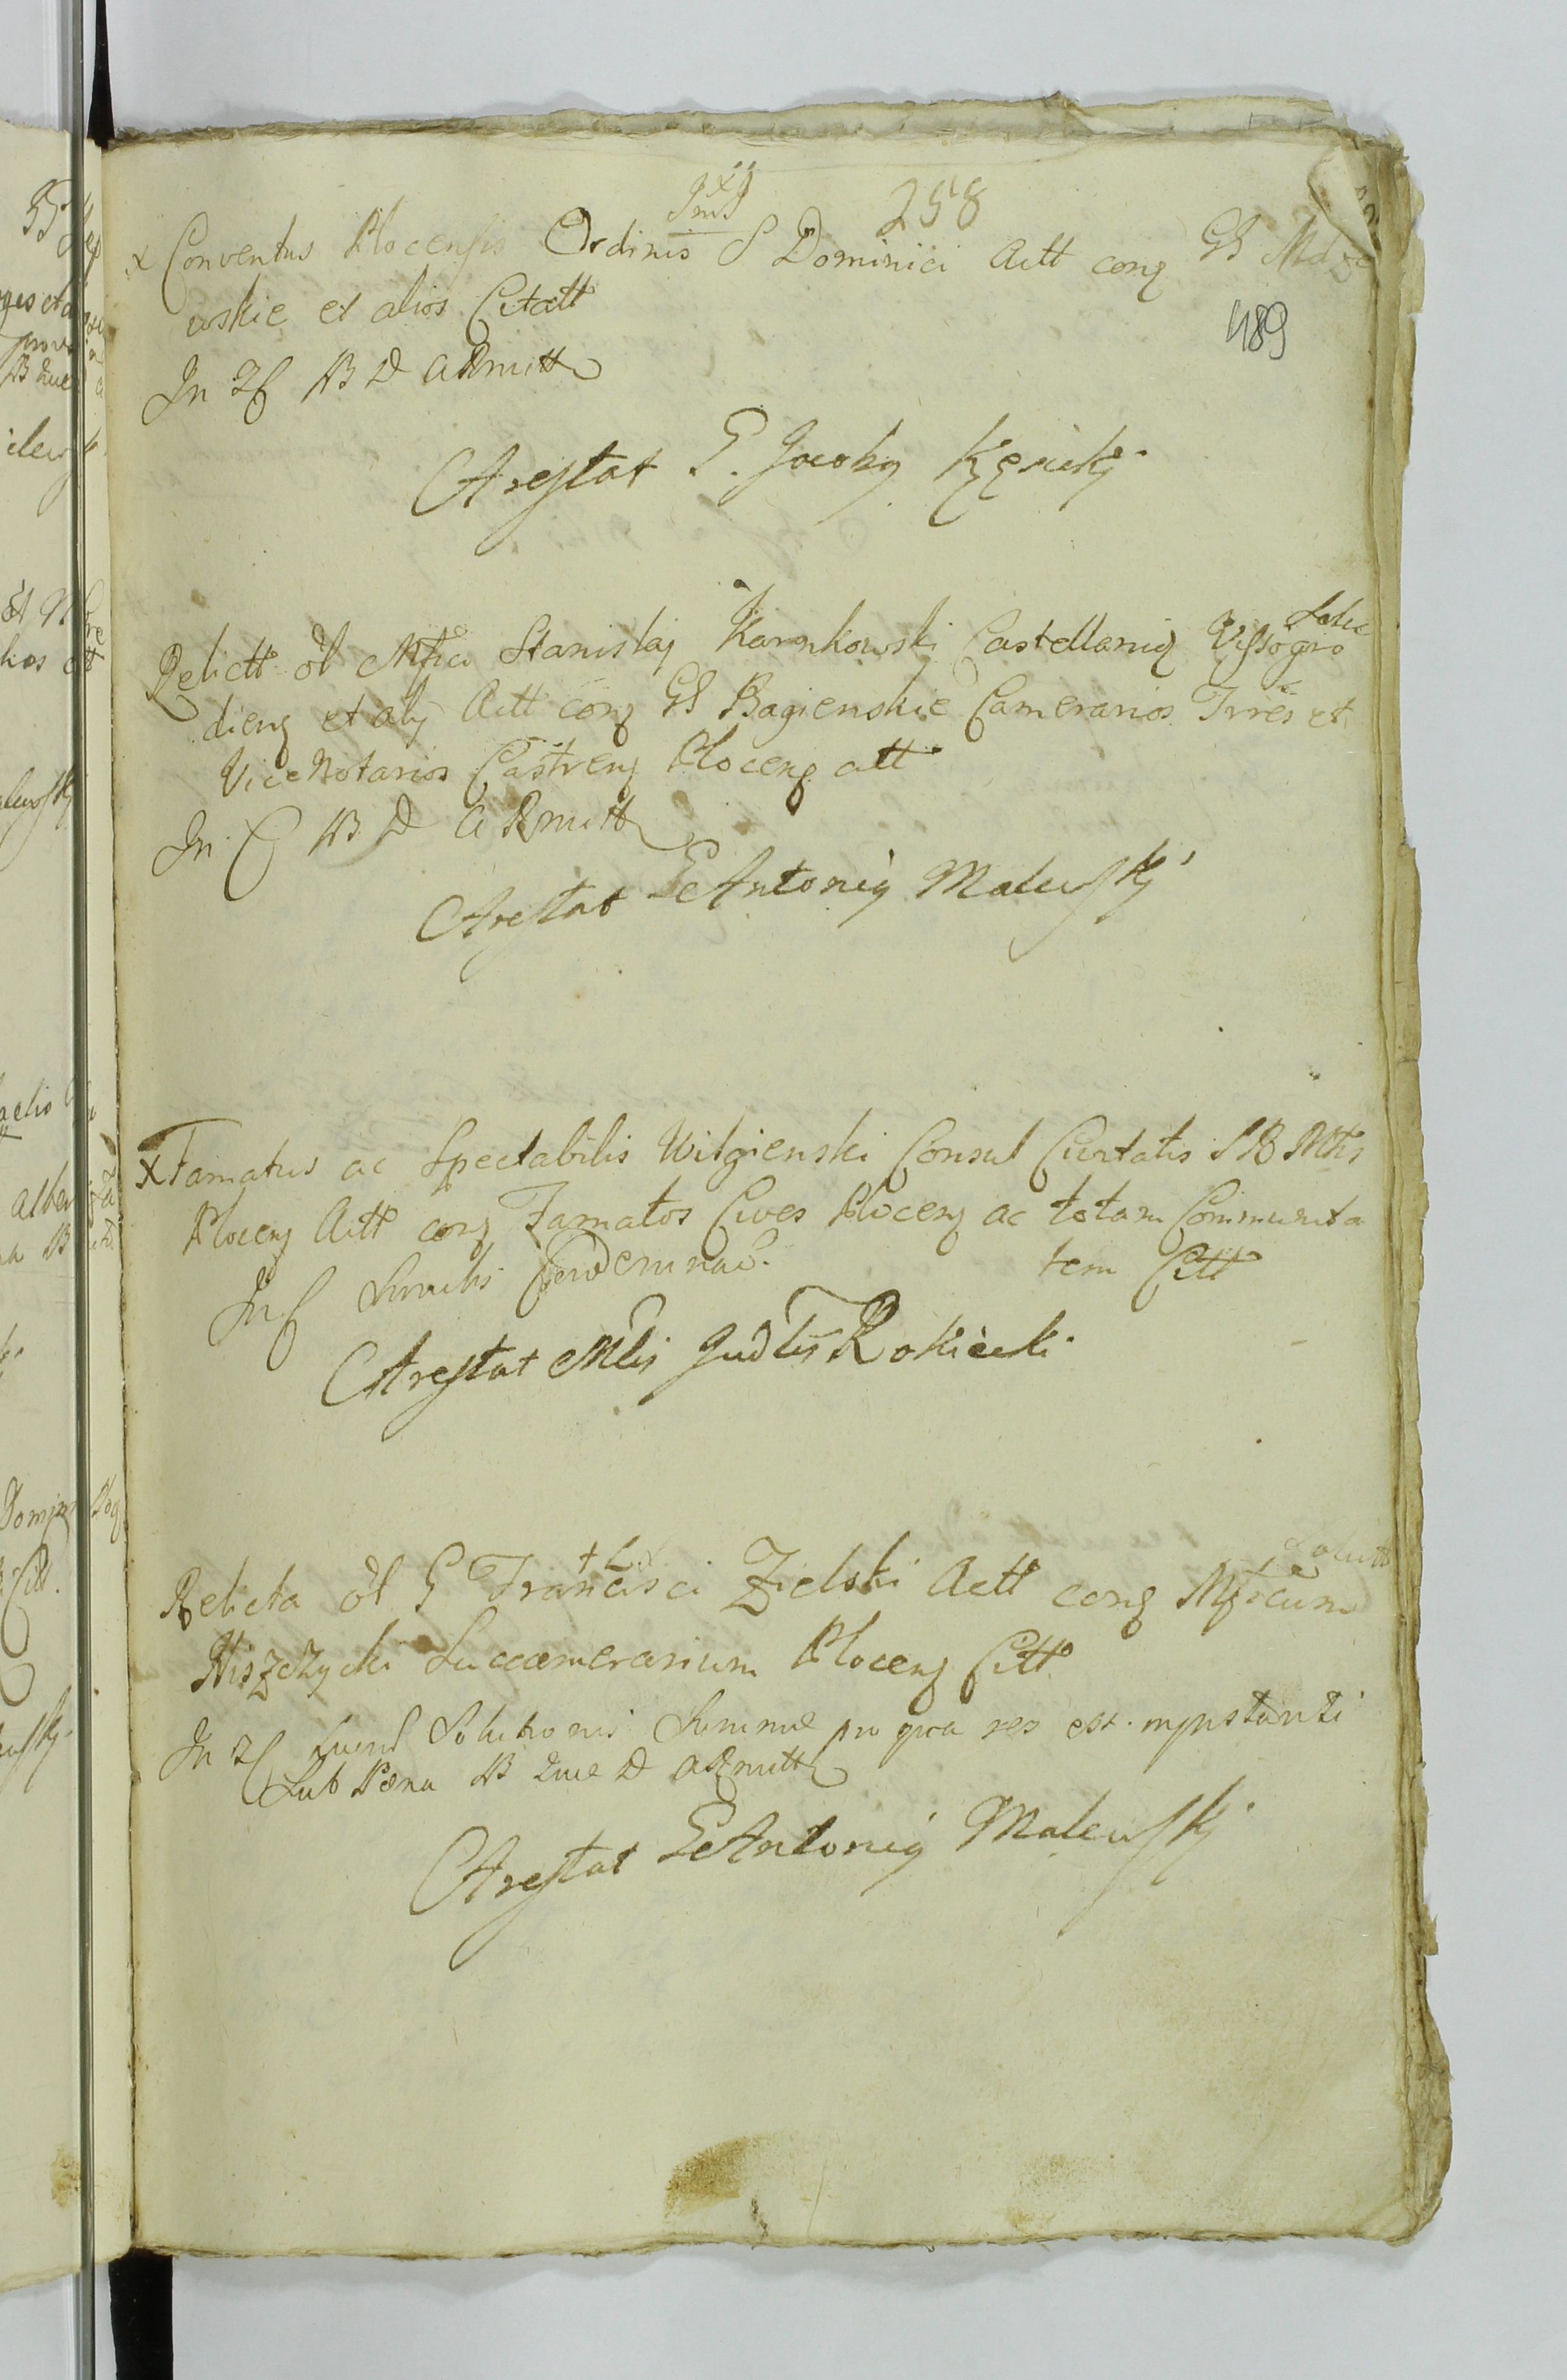 258
x Conventus Plocensis Ordinis S Dominici Actt conq GG
wskie et alios Citatt
489
In 2 B D admitt
Arestat G. Jacobq Kęsicki
Relictt ol Mfici Stanislaj Karnkowski Castellaniq Vissogro
dienq et alij Actt conq GG Bagienskie Camerarios Trres et
Vice Notarios Castrenq Plocenq citt
In C B D admitt
Arestat G Antoniq Malewski
x Famatus ac Spectabilis Wilgienski Consul Civitatis S R Mtis
Plocenq Actt conq Famatos Cives Plocenq ac totam Communita
tem Citt
In Condemnao.
Arestat Mlis Judlis Rokicki
Relicta ol G Francisci Zielski Actt conq Mficum
Niszczycki Succamerarium Plocenq Citt
In 2 Luend Solutionis Summae pro qua res est
Sub Poena B Quae D admitt
Arestat G Antoniq Malewski